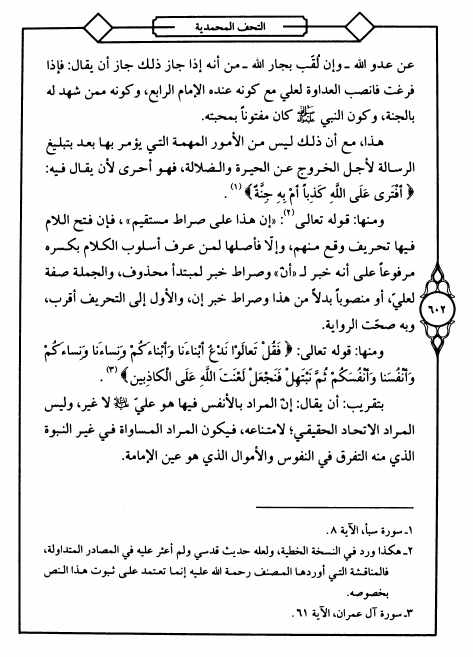 التحف المحمدية
عن عدو الله ـ وإن لُقّب بجار الله ـ من أنه إذا جاز ذلك جاز أن يقال: فإذا
فرغت فانصب العداوة لعلي مع كونه عنده الإمام الرابع، وكونه ممن شهد له
بالجنة، وكون النبي ﷺ كان مفتوناً بمحبته.
هذا، مع أن ذلك ليس من الأمور المهمة التي يؤمر بها بعد بتبليغ
الرسالة لأجل الخروج عن الحيرة والضلالة، فهو أحرى لأن يقال فيه:
﴿ أَفْتَرَى عَلَى اللَّهِ كَذِباً أَمْ بِهِ جِنَّةٌ﴾ (١) .
ومنها: قوله تعالى(٢): «إن هذا على صراط مستقيم»، فإن فتح اللام
فيها تحريف وقع منهم، وإلّا فأصلها لمن عرف أسلوب الكلام بكسره
مرفوعاً على أنه خبر لـ «أنّ» وصراط خبر لمبتدأ محذوف، والجملة صفة
لعليّ، أو منصوباً بدلاً من هذا وصراط خبر إن، والأول إلى التحريف أقرب،
وبه صحّت الرواية.
ومنها: قوله تعالى: ﴿ فَقُلْ تَعَالَوْا نَدْعُ أَبْنَاءَنَا وَأَبْنَاءَكُمْ وَنِسَاءَنَا وَنِسَاءَكُمْ
وَأَنْفُسَنَا وَأَنْفُسَكُمْ ثُمَّ نَبْتَهِلْ فَنَجْعَلْ لَعْنَتَ اللَّهِ عَلَى الْكَاذِبِينَ﴾ (٣) .
بتقريب: أن يقال: إنّ المراد بالأنفس فيها هو عليّ لا غير، وليس
المراد الاتحاد الحقيقي؛ لامتناعه، فيكون المراد المساواة في غير النبوة
الذي منه التفرق في النفوس والأموال الذي هو عين الإمامة.
٦٠٢
١ـ سورة سبأ، الآية ٨.
٢ـ هكذا ورد في النسخة الخطية، ولعله حديث قدسي ولم أعثر عليه في المصادر المتداولة،
فالمناقشة التي أوردها المصنف رحمة الله عليه إنما تعتمد على ثبوت هذا النص
بخصوصه.
٣ـ سورة آل عمران، الآية ٦١.